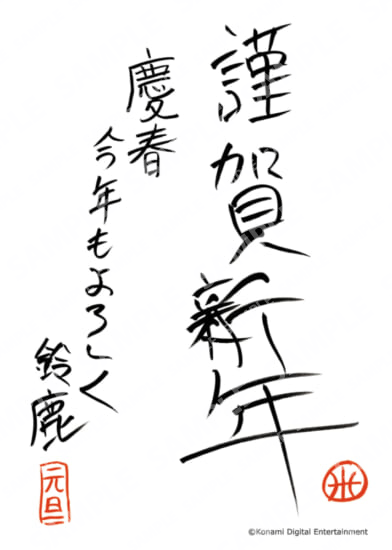 謹賀新年
慶春
今年もよろしく
鈴鹿
元旦
©Konami Digital Entertainment